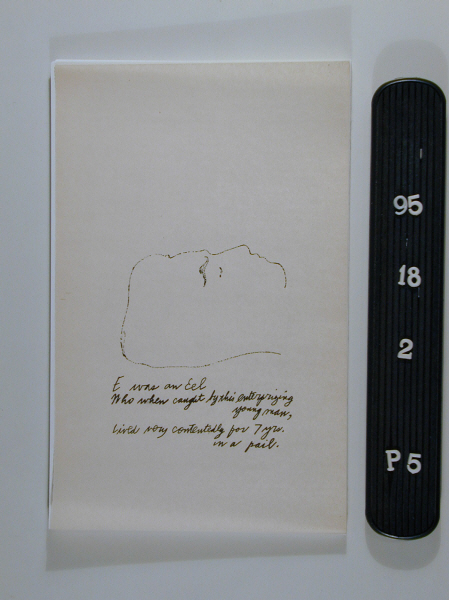 E was an Eel
Who when caught by this enterprizing
young man,
Lived very contentedly for 7 yrs.
in a pail.
95
18
2
P5